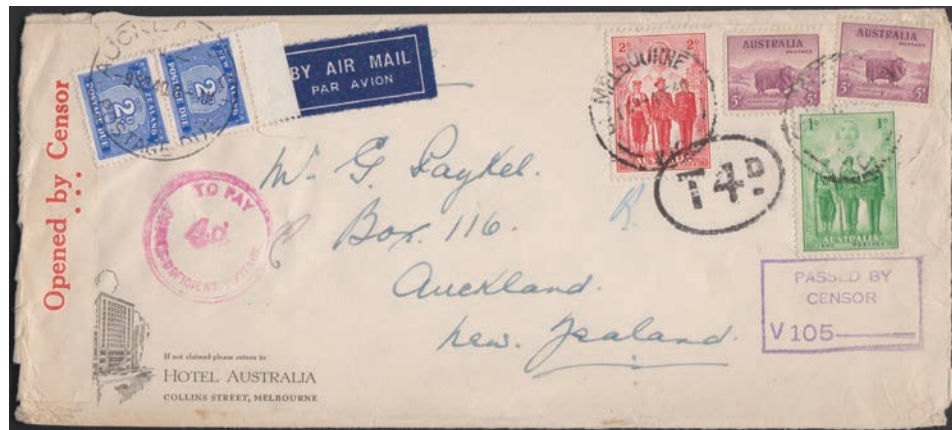 Opened by Censor
AUCKLAND
NEW ZEALAND
2D
POSTAGE DUE
NEW ZEALAND
2D
POSTAGE DUE
BY AIR MAIL
PAR AVION
2D
AUSTRALIA
MELBOURNE
AUSTRALIA
POSTAGE
5D
AUSTRALIA
POSTAGE
5D
1D 1D
AUSTRALIA
T4D
TO PAY
4d.
DEFICIENT POSTAGE
W. G. Paykel.
Box. 116.
Auckland.
New Zealand.
PASSED BY
CENSOR
V 105
If not claimed please return to
HOTEL AUSTRALIA
COLLINS STREET, MELBOURNE